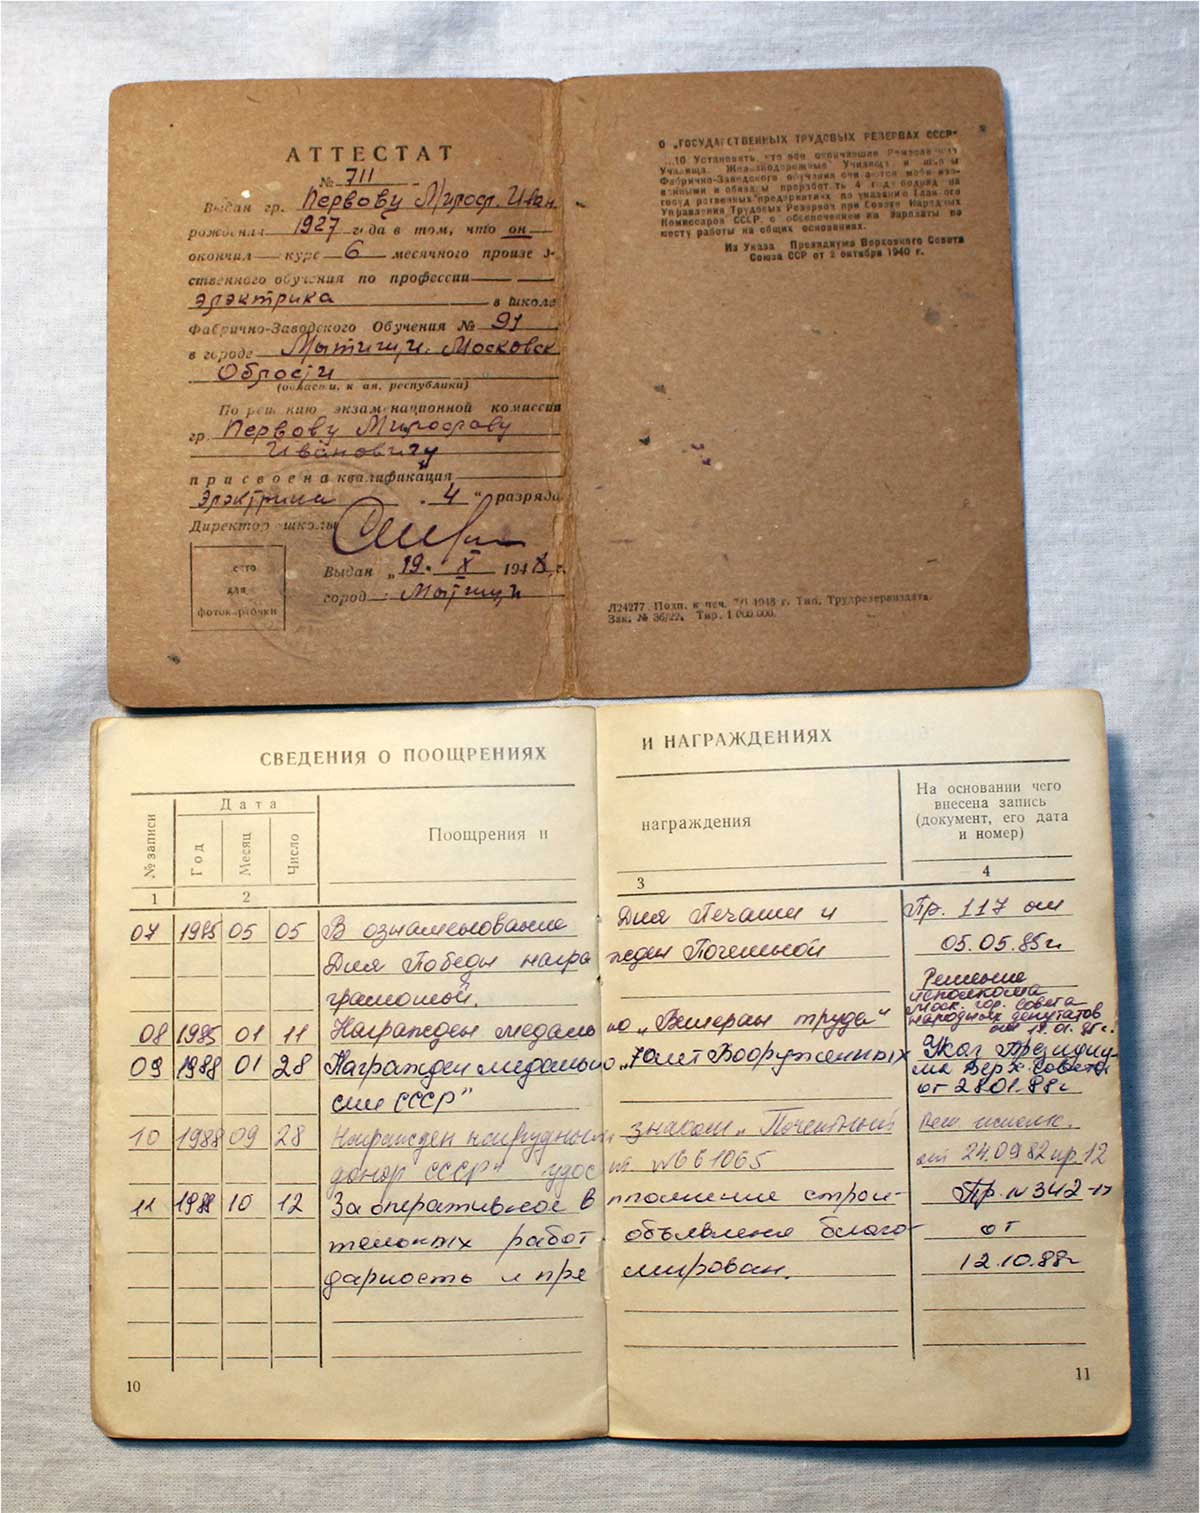 АТТЕСТАТ
№ 711
Выдан гр. Первову Мирор. Иван.
рождения 1927 года в том, что он
окончил курс 6 месячного произв
ственного обучения по профессии
Элэктрика в школе
Фабрично-Заводского Обучения № 91
в городе Мытищи. Московск
Области
(области, к ая, республики)
По решению экзаменационной комиссии
гр. Первову
Ивановичу
присвоена квалификация
Элэктрика „4“ разряда
Директор школы
место
для
фотокарточки
Выдан „19. X 194 г.
город Мытищи
О „ГОСУДАРСТВЕННЫХ ТРУДОВЫХ РЕЗЕРВАХ СССР“
...10 Установить, что все окончившие Ремесленные
Училища, Железнодорожные Училища и школы
Фабрично-Заводского обучения считаются мобилизо-
ванными и обязаны проработать 4 года подряд на
государственных предприятиях по указанию Главного
Управления Трудовых Резервов при Совете Народных
Комиссаров СССР, с обеспечением их зарплаты по
месту работы на общих основаниях.
Из Указа Президиума Верховного Совета
Союза ССР от 2 октября 1940 г.
Л24277 Подп. к печ. 1948 г. Тип. Трудрезервиздата.
Зак. № 36/22. Тир. 1 000 000.
СВЕДЕНИЯ О ПООЩРЕНИЯХ И НАГРАЖДЕНИЯХ
№ записи Дата Поощрения и награждения На основании чего
внесена запись
(документ, его дата
и номер)
Год Месяц Число
1 2 3 4
07 1985 05 05 В ознаменование Дня Печати и Пр. 117 от
Дня Победы награжден Почетной 05.05.85г
грамотой. Решение
исполкома
Моск. гор. совета
народных депутатов
08 1985 01 11 Награжден медалью „Ветеран труда“ от 11.01.85г.
09 1988 01 28 Награжден медалью „70 лет Вооруженных Указ Президиу-
сил СССР" ма Верх. Совета
от 28.01.88г
10 1988 09 28 Награжден нагрудным знаком „Почетный Реш. исполк.
донор СССР" удос № 661065 от 24.09.82 пр.12
11 1988 10 12 За оперативное выполнение строи- Пр. № 342-
тельных работ объявлена благо- от
дарность и премирован. 12.10.88г
10 11